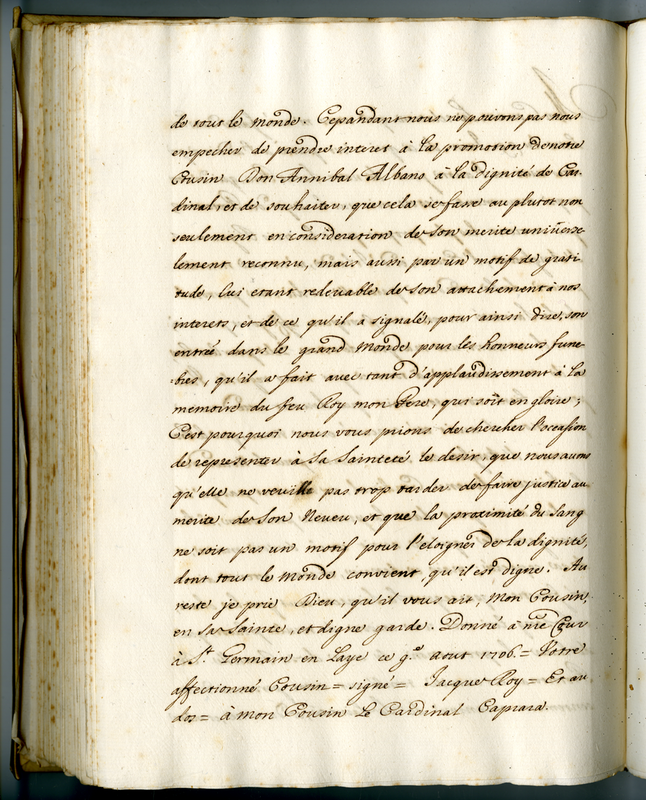 de tout le monde. Cepandant nous ne pouvons pas nous
empecher de prendre interet à la promotion denotre
Cousin Don Annibal Albano à la dignité de Car-
dinal, et de souhaiter, que cela se fasse au plutot non
seulement en consideration de son merite universe-
lement reconnu, mais aussi par un motif de grati-
tude, lui etant redevable de son attachement à nos
interets, et de ce qu'il a signalé, pour ainsi dire, son
entrée dans le grand monde pour les honneurs fune-
bres, qu'il a fait avec tant d'applaudissement à la
memoire du feu Roy mon Pere, qui soit en gloire;
C'est pourquoi nous vous prions de chercher l'occasion
de representer à Sa Sainteté le desir, que nous avons
qu'elle ne veuille pas trop tarder de faire justice au
merite de son Neveu, et que la proximité du sang
ne soit pas un motif pour l'eloigner de la dignité,
dont tout le monde convient, qu'il est digne. Au
reste je prie Dieu, qu'il vous ait, Mon Cousin,
en sa Sainte, et digne garde. Donné à nre Cour
à St. Germain en Laye ce 9.e Aout 1706.= Votre
affectionné Cousin= signé= Jacques Roy= Et au
dos= à mon Cousin Le Cardinal Caprara.